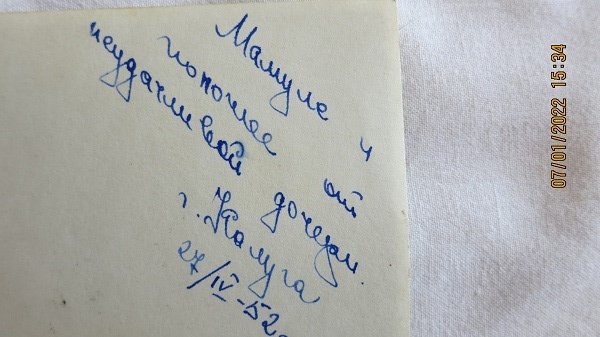 Мамуле и
папочке от
неудачливой дочери.
г. Калуга
27/IV-52г.
07/01/2022 15:34